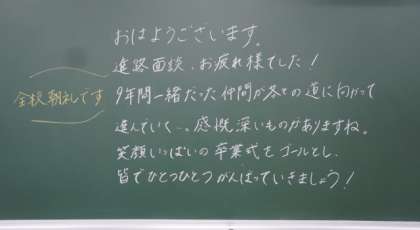 おはようございます。
進路面談、お疲れ様でした!
全校朝礼です
9年間一緒だった仲間が各々の道に向かって
進んでいく…。感慨深いものがありますね。
笑顔いっぱいの卒業式をゴールとし、
皆でひとつひとつがんばっていきましょう!